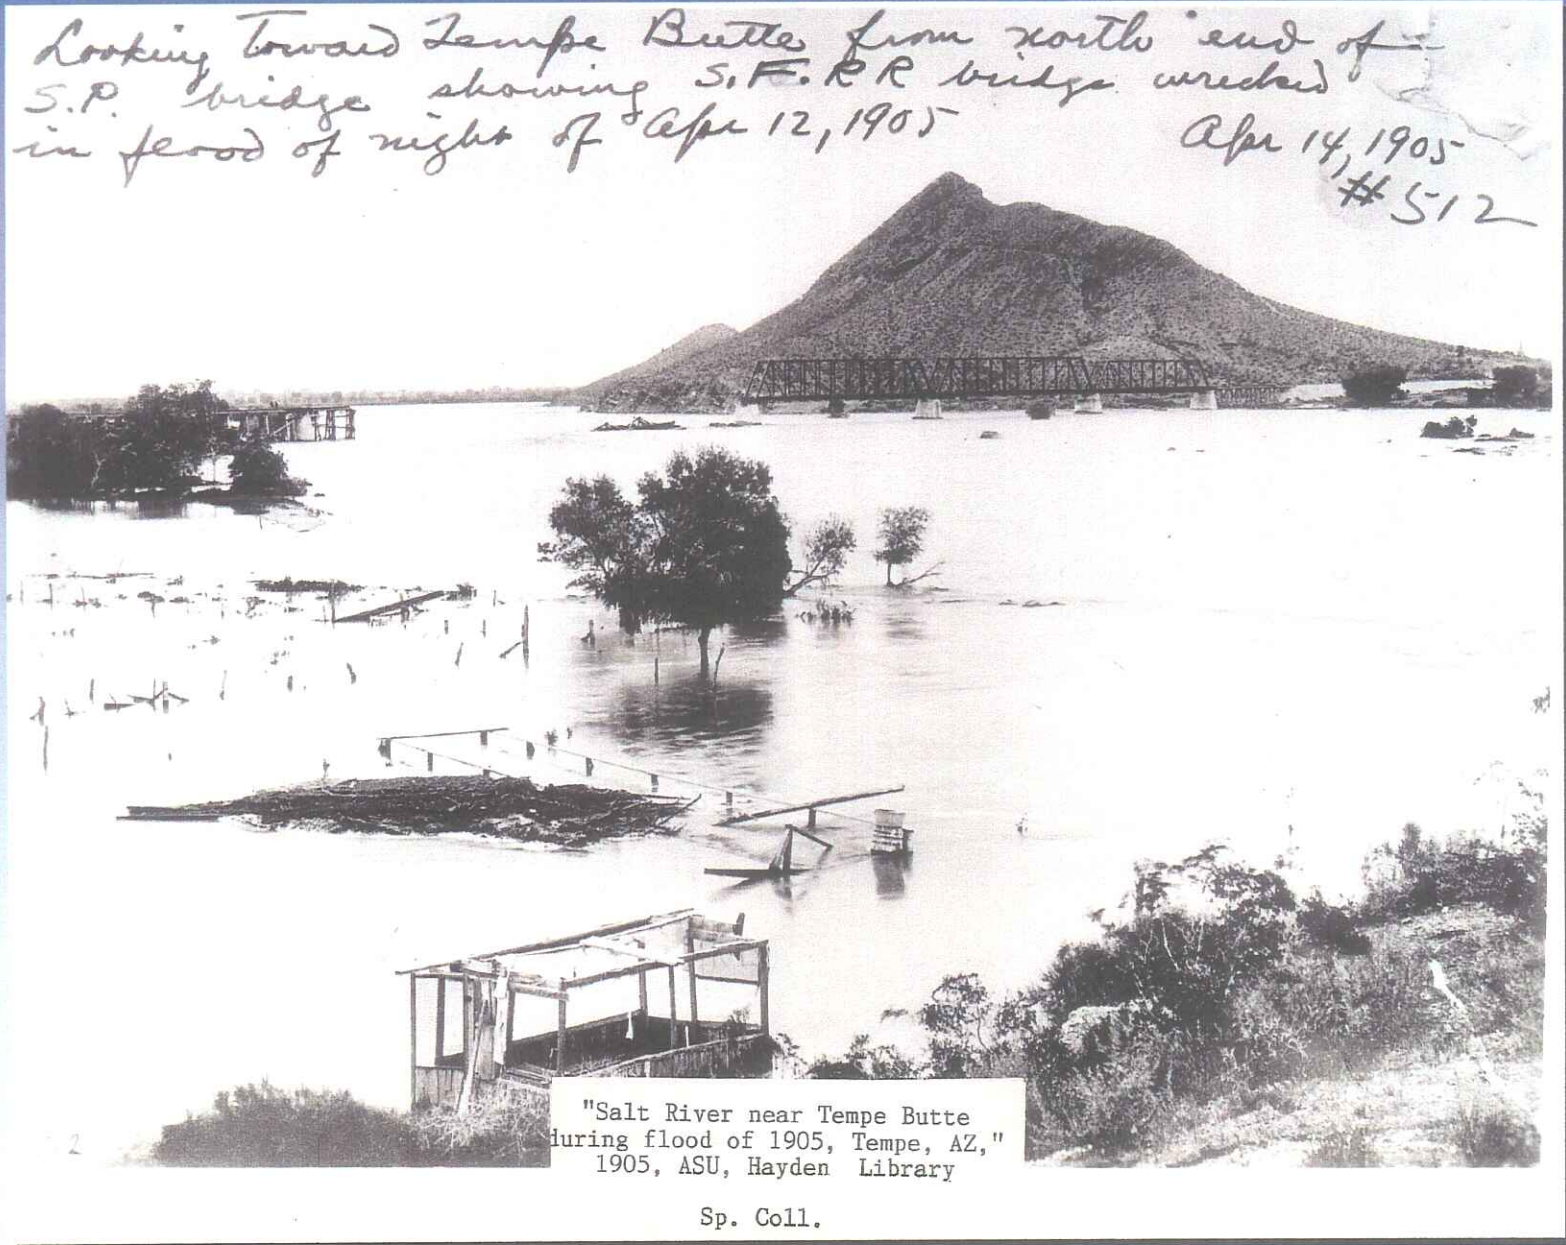 Looking Toward Tempe Butte from north end of
S.P. bridge showing S.F.RR bridge wrecked
in flood of night of Apr 12, 1905
Apr 14, 1905
#512
2
"Salt River near Tempe Butte
during flood of 1905, Tempe, AZ,"
1905, ASU, Hayden Library
Sp. Coll.